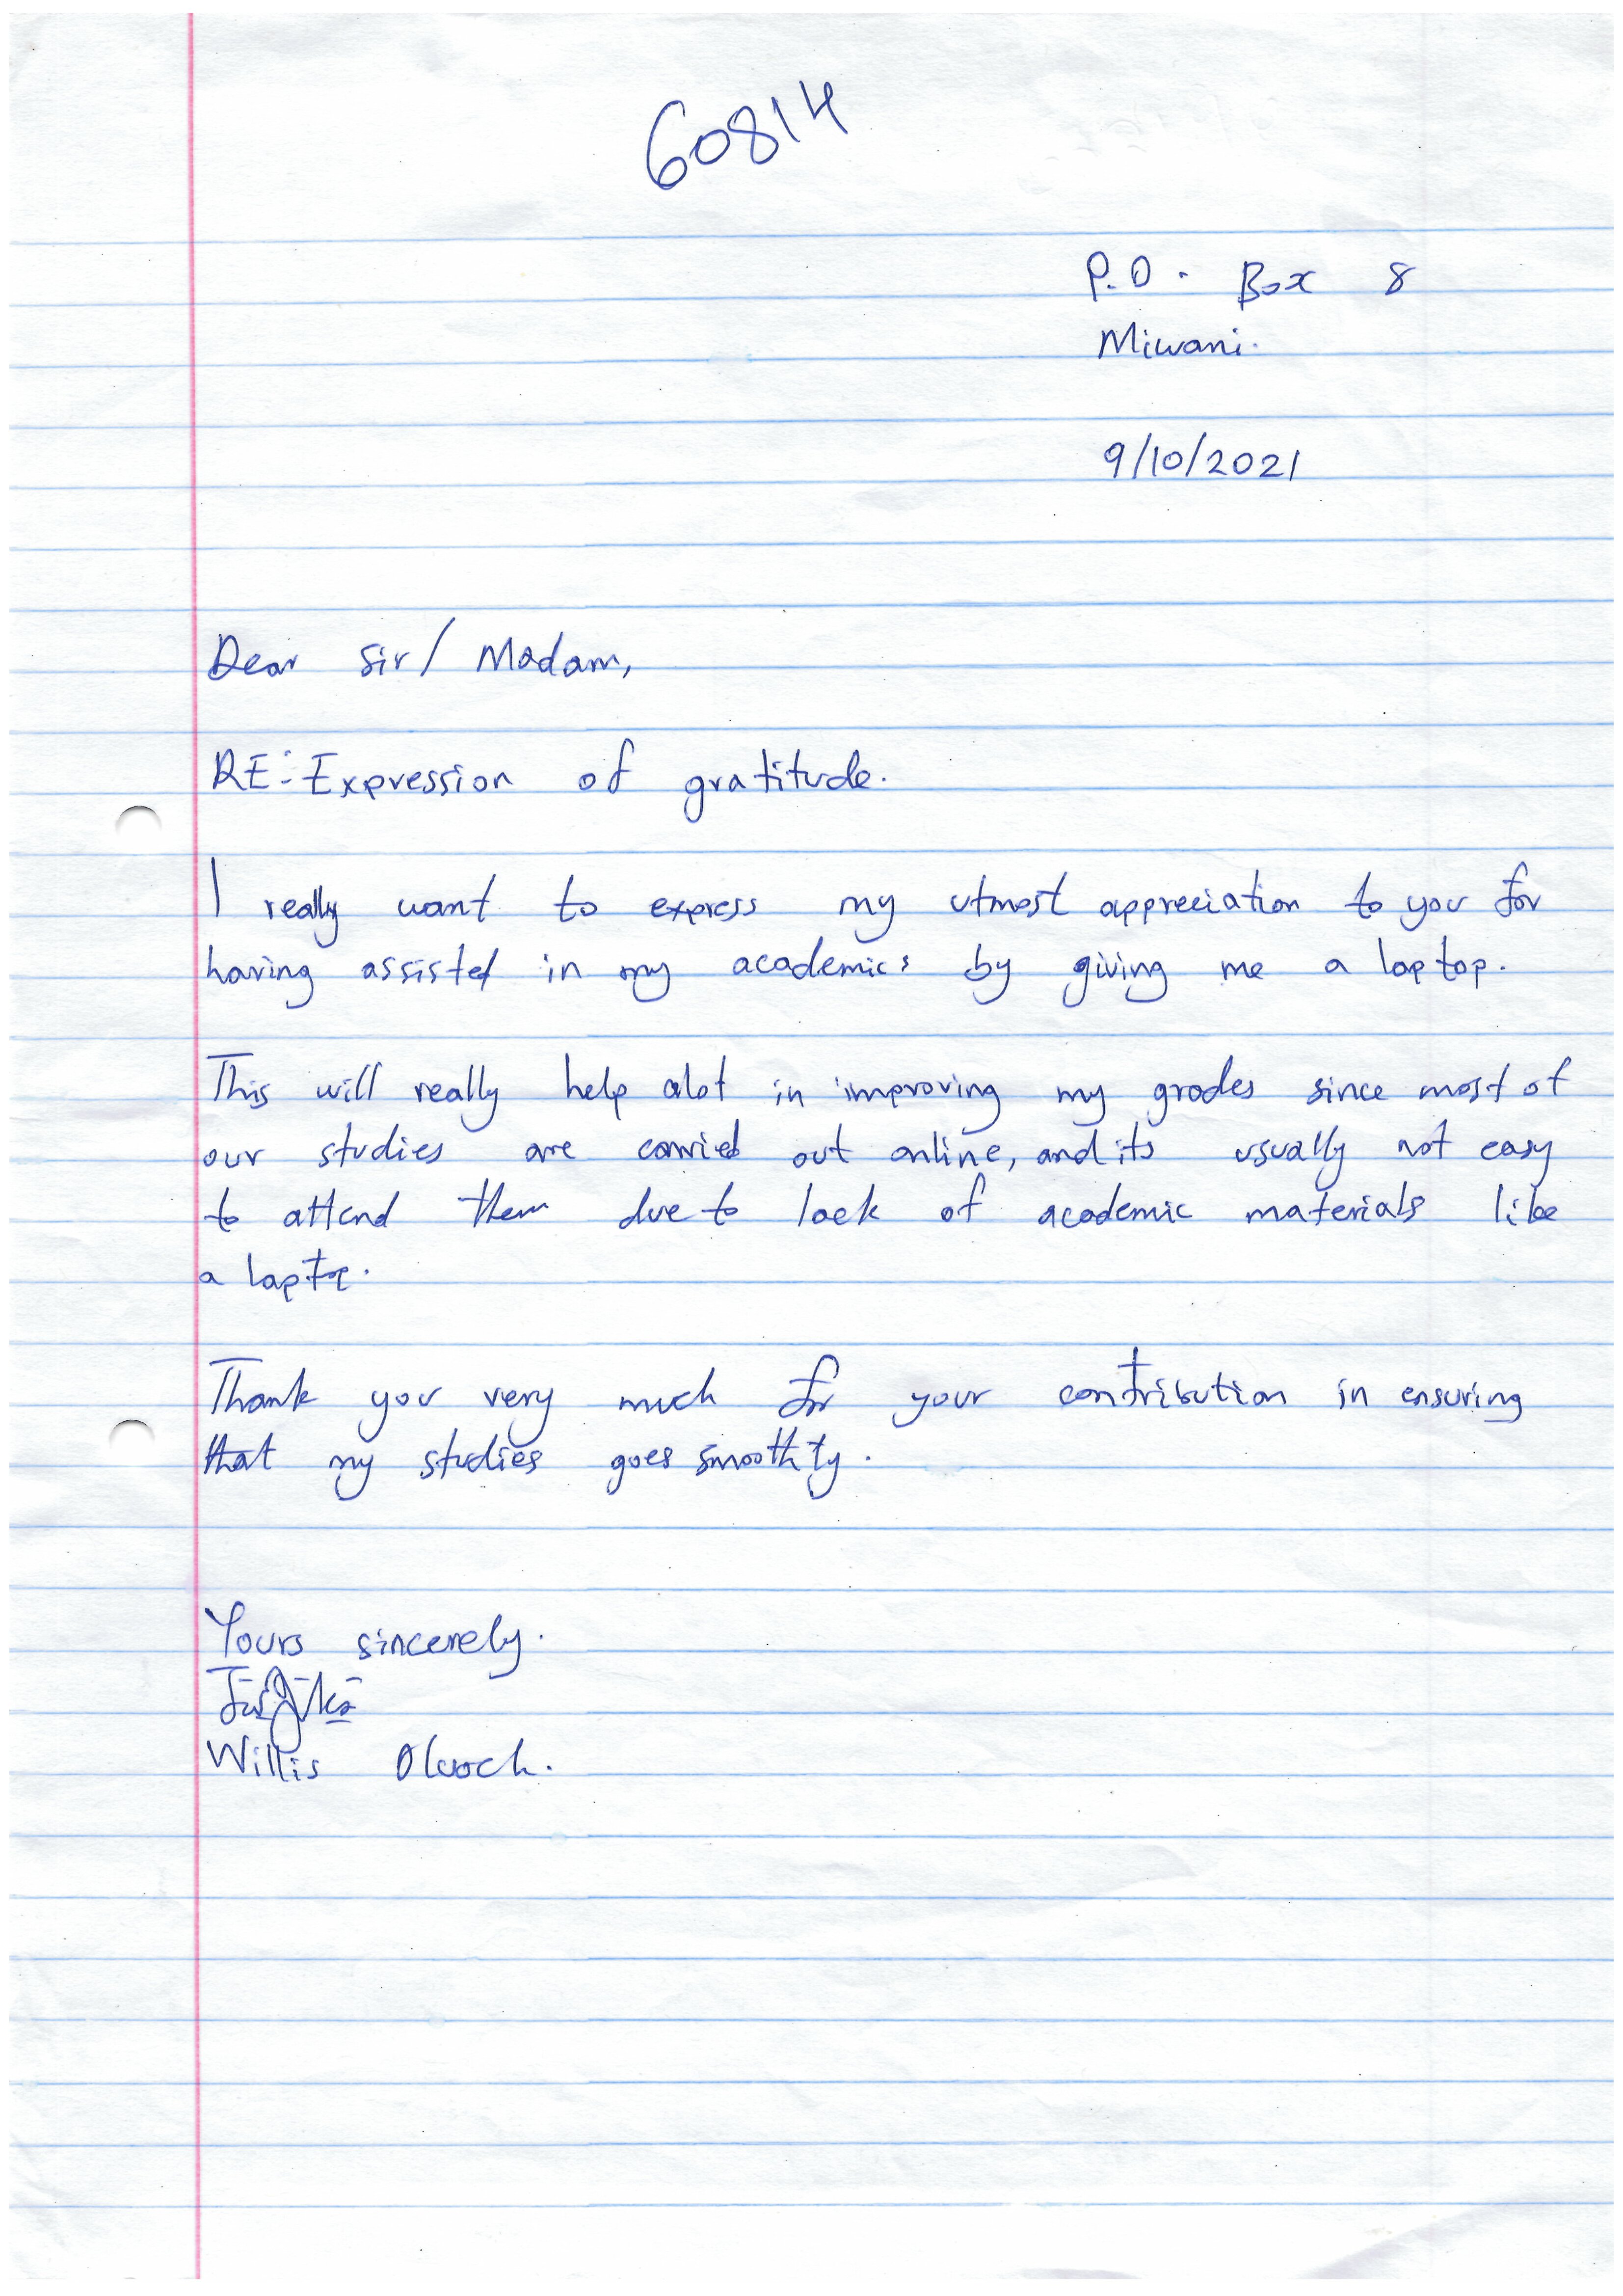 60814
P.O. Box 8
Miwani.
9/10/2021
Dear Sir/ Madam,
RE: Expression of gratitude.
I really want to express my utmost appreciation to you for
having assisted in my academics by giving me a laptop.
This will really help alot in improving my grades since most of
our studies are carried out online, and its usually not easy
to attend them due to lack of academic materials like
a laptop.
Thank you very much for your contribution in ensuring
that my studies goes smoothly.
Yours sincerely.
Willis Oluoch.